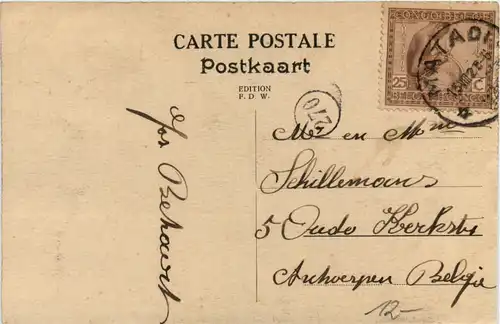 CARTE POSTALE
Postkaart
EDITION
F. D. W.
CONGO BELGE
25 C
MATADI
270
Mr en Mme
Schillemans
5 Oude Kerkstr
Antwerpen Belgie
12-